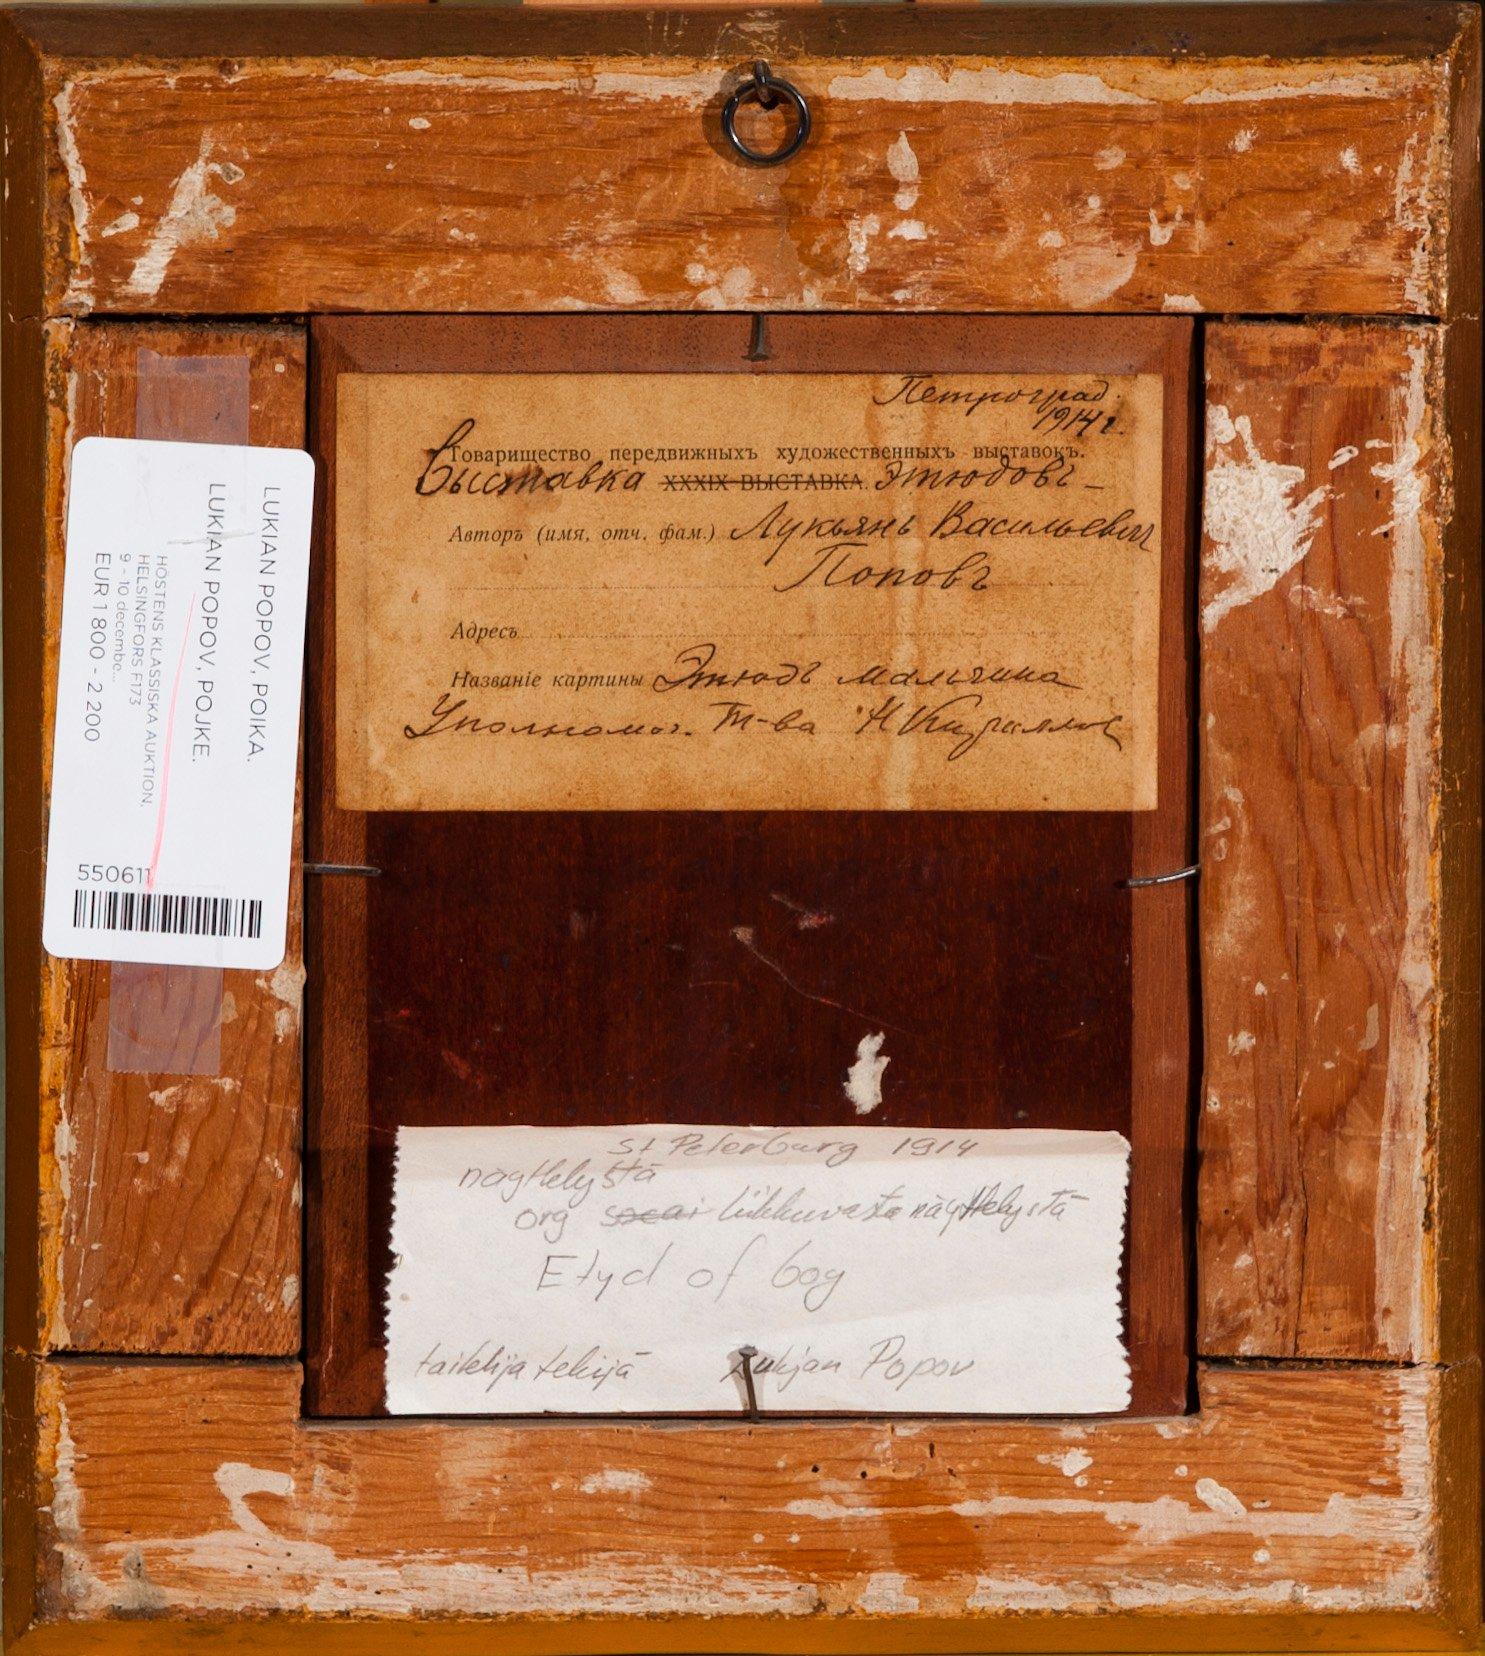 Петроград.
1914 г.
Товарищество передвижныхъ художественныхъ выставокъ.
Выставка XXXIX ВЫСТАВКА. Этюдовъ
Авторъ (имя, отч. фам.) Лукьянъ Васильевич
Поповъ
Адресъ
Названіе картины Этюдъ мальчика
Уполномоч. Т-ва Н
LUKIAN POPOV, POIKA.
LUKIAN POPOV, POJKE.
HÖSTENS KLASSISKA AUKTION.
HELSINGFORS F173
9 - 10 decembe...
EUR 1 800 - 2 200
550611
St Peterburg 1914
näyttelystä
org liikkuvasta näyttelystä
Etyd of boy
taikkija tekijä Lukjan Popov